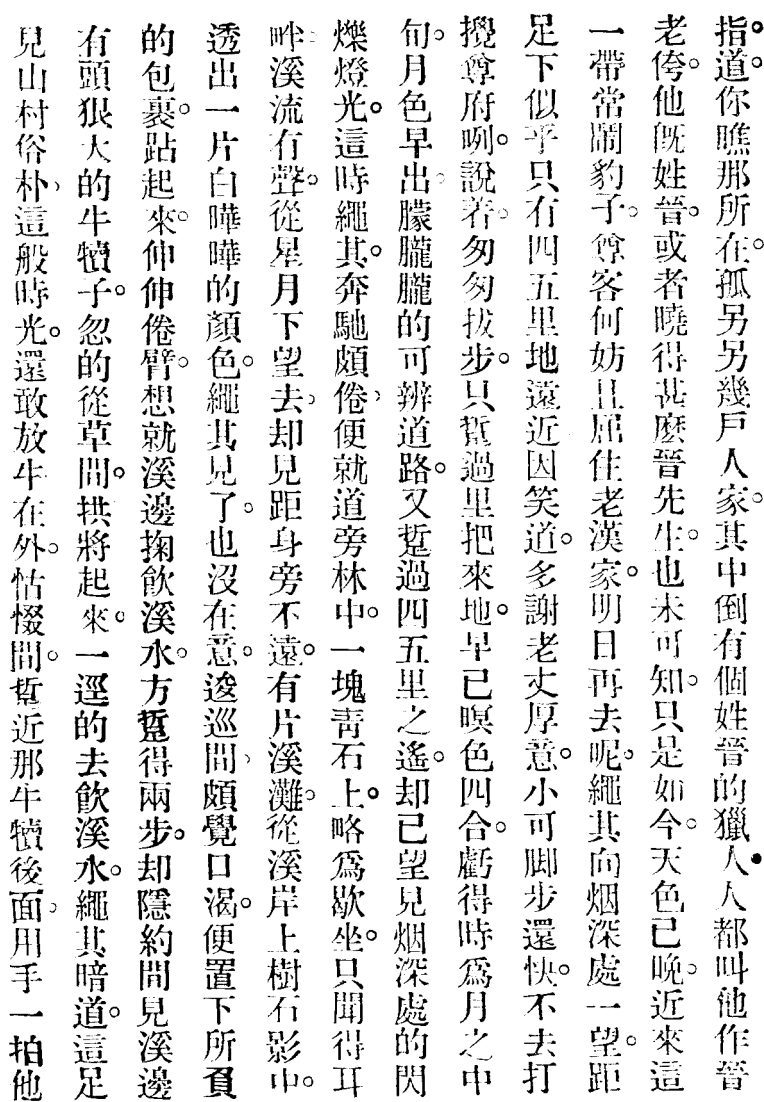 指道。你瞧那所在。孤另另幾戶人家。其中倒有個姓晉的獵人。人都叫他作晉
老侉。他既姓晉。或者曉得甚麽晉先生。也未可知。只是如今。天色已晚。近來這
一帶常鬧豹子。尊客何妨且屈住老漢家。明日再去呢。繩其向烟深處一望。距
足下似乎只有四五里地遠近。因笑道。多謝老丈厚意。小可脚步還快。不去打
攪尊府咧。說着。匆匆拔步。只踅過里把來地。早已暝色四合。虧得時爲月之中
旬。月色早出。朦朧朧的可辨道路。又踅過四五里之遙。却已望見烟深處的閃
爍燈光。這時繩其。奔馳頗倦。便就道旁林中。一塊靑石上。略爲歇坐。只聞得耳
畔溪流有聲。從星月下望去。却見距身旁不遠。有片溪灘。從溪岸上樹石影中。
透出一片白曄曄的顏色。繩其見了。也沒在意。逡巡間、頗覺口渴。便置下所負
的包裹。跕起來。伸伸倦臂。想就溪邊掬飲溪水。方踅得兩步。却隱約間見溪邊
有頭狠大的牛犢子。忽的從草間。拱將起來。一逕的去飲溪水。繩其暗道。這足
見山村俗朴、這般時光。還敢放牛在外。怙惙間。踅近那牛犢後面。用手一拍他